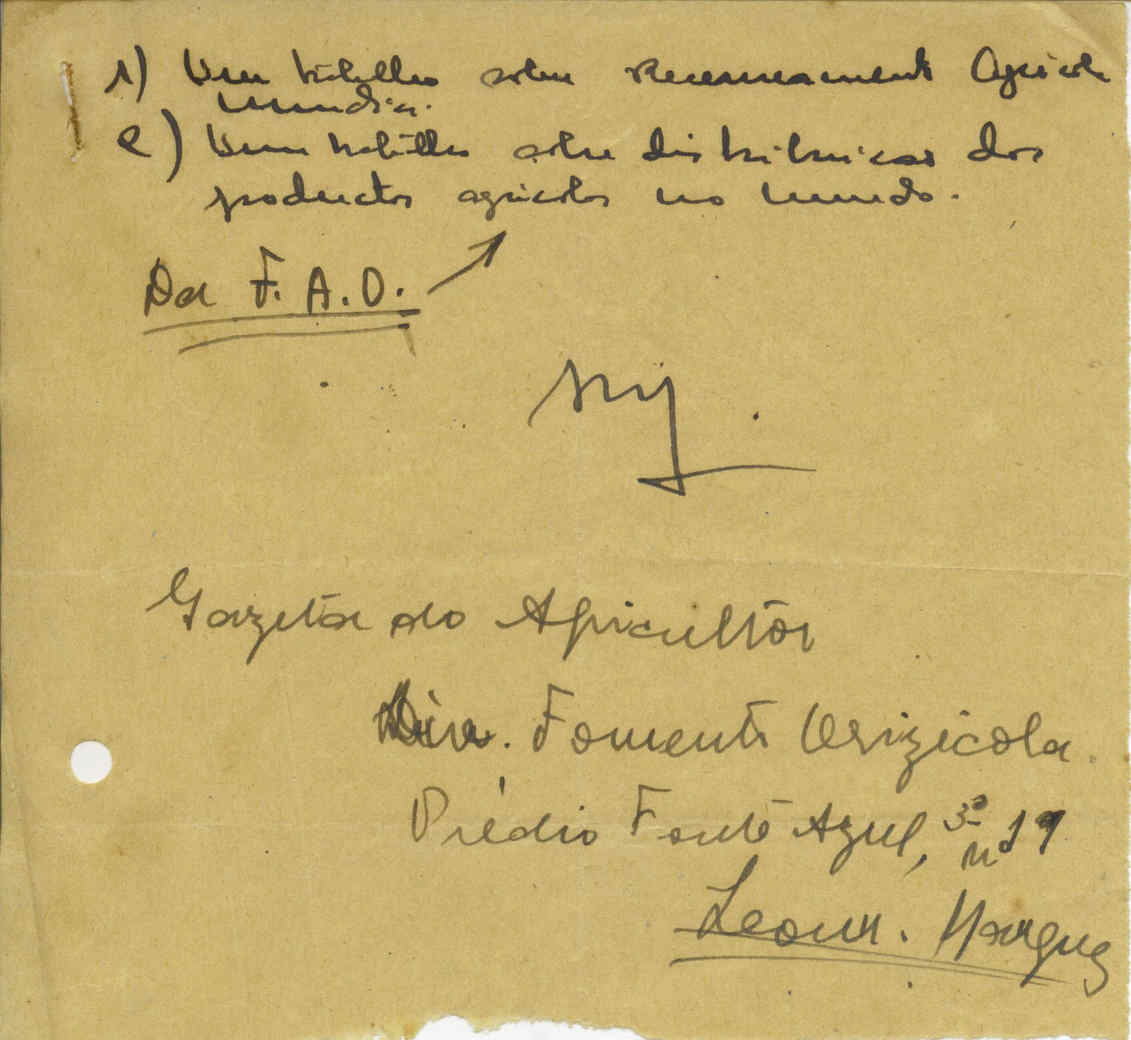 1) Um trabalho sobre Recenseamento Agricola
mundial.
2) Um trabalho sobre distribuicao dos
productos agricolas no mundo.
Da F. A. O.
Gazeta do Apicultor
Div. Fomento Orizicola.
Prédio Fonte Azul, 3º nº 19
Leonor. Marques